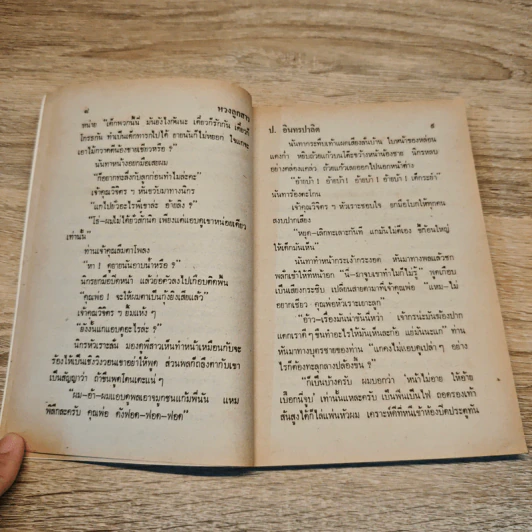 ๘
หวงลูกสาว
หน่าย "เด็กพวกนี้นี่ มันยังไงกัน
โกรธกัน ทำเป็นเด็กทารกไปได้ อายนันก็ไม่หยอก
เอาไม้กวาดตีน้องชายเขียวหรือ ?"
นันทาหน้างอกมือเสยผม
"ก็อยากทะลึ่งกับลูกก่อนทำไมล่ะคะ"
เจ้าคุณวิจิตร ฯ หันขวับมาทางนิกร
"แกไปทำอะไรพี่เขาล่ะ อ้ายลิง ?"
"โธ่-ผมไม่ได้ยั่วสักนิด เพียงแต่แอบดูเขาหน่อยเดียว
เท่านั้น"
ท่านเจ้าคุณลืมตาโพลง
"หา ! ดูอายนันอาบน้ำหรือ ?"
นิกรยกมือปิดหน้า แล้วย่อตัวลงไปเกือบติดพื้น
"คุณพ่อ ! จะให้ผมตาเป็นกุ้งยิงเสียแล้ว"
เจ้าคุณวิจิตร ฯ ยิ้มแห้ง ๆ
"ยังงั้นแกแอบดูอะไรล่ะ ?"
นิกรหัวเราะลั่น มองดูพี่สาวเห็นทำหน้าเหมือนกับจะ
ร้องไห้เป็นเชิงวิงวอนเขาอย่าให้พูด ส่วนพลก็ถลึงตากับเขา
เป็นสัญญาว่า ถ้าขืนพูดโดนเตะแน่ ๆ
"ผม-อ้า-ผมแอบดูพลเอาจมูกชนแก้มพี่นัน แหม
พิลึกละครับ คุณพ่อ ดังฟอด-ฟอด-ฟอด"
ป. อินทรปาลิต
๙
นันทากระทืบเท้าแผดเสียงลั่นบ้าน ใบหน้าของหล่อน
แดงก่ำ หยิบถ้วยแก้วบนโต๊ะขว้างหน้าน้องชาย นิกรหลบ
อย่างคล่องแคล่ว ถ้วยแก้วเลยออกไปนอกหน้าต่าง
"อ้ายบ้า ! อ้ายบ้า ! อ้ายบ้า ! อ้ายบ้า ! เด็กระยำ"
นันทาร้องตะโกน
เจ้าคุณวิจิตร ฯ หัวเราะชอบใจ ยกมือโบกให้ทุกคน
สงบปากเสียง
"หยุด-เลิกทะเลาะกันที แกมันไม่ดีเอง
ให้เด็กมันเห็น"
นันทาทำหน้ากระเง้ากระงอด หันมาทางพลแล้วชก
พลักเข้าให้ที่หน้าอก "นี่-มาจูบเขาทำไมก็ไม่รู้" พูดเกือบ
เป็นเสียงกระซิบ เปลี่ยนสายตามาที่เจ้าคุณพ่อ "แหม-ไม่
อยากเชียว คุณพ่อหัวเราะเยาะลูก"
"อ้าว-เรื่องมันน่าขันนี่หว่า เจ้ากรนะมันฆ้องปาก
แตกเราดี ๆ ขืนทำอะไรให้มันเห็นละก้อ แย่มันนะแก" ท่าน
หันมาทางบุตรชายของท่าน "แกคงไม่แอบดูเปล่า ๆ อย่าง
ไรก็ต้องทะลุกลางปล้องขึ้น ?"
"ก็เป็นบ้างครับ ผมบอกว่า
เท่านั้นแหละครับ เป็นฟืนเป็นไฟ ถอดรองเท้า
ส้นสูงได้ก็ไล่แพ่นหัวผม เคราะห์ดีที่หนีเข้าห้องปิดประตูทัน